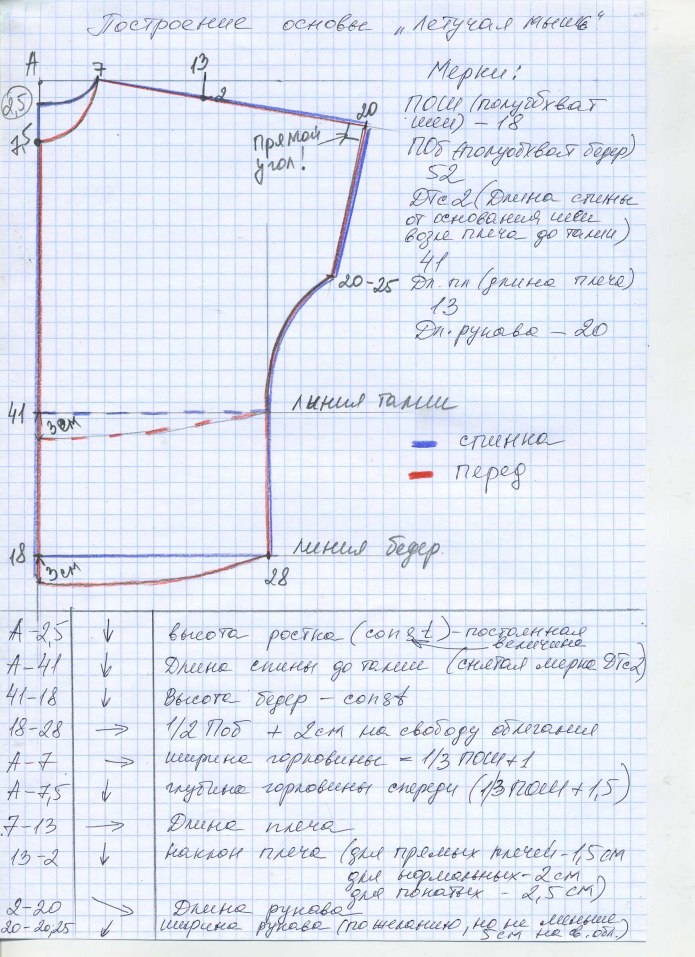 Построение основы „Летучая мышь"
А
7
13
2
20
2,5
7,5
Прямой
угол!
20-25
Мерки:
ПОШ (полуобхват
шеи) - 18
ПОб (полуобхват бедер)
52
ДТс2 (Длина спины
от основания шеи
возле плеча до талии)
41
Дл.пл (длина плеча)
13
Дл. рукава - 20
41
3см
линия талии
спинка
перед
18
3см
линия бедер
28
А-2,5 ↓ высота ростка (const) - постоянная
величина
А-41 ↓ Длина спины до талии (снятая мерка ДТс2)
41-18 ↓ Высота бедер - const
18-28 → 1/2 Поб + 2см на свободу облегания
А-7 → ширина горловины = 1/3 ПОШ+1
А-7,5 ↓ глубина горловины спереди (1/3 ПОШ + 1,5)
7-13 → Длина плеча
13-2 ↓ наклон плеча (для прямых плечей - 1,5см
для нормальных - 2см
для покатых - 2,5см)
2-20 ↘ Длина рукава
20-20,25 ↓ ширина рукава (по желанию, но не меньше
5см на св. обл.)